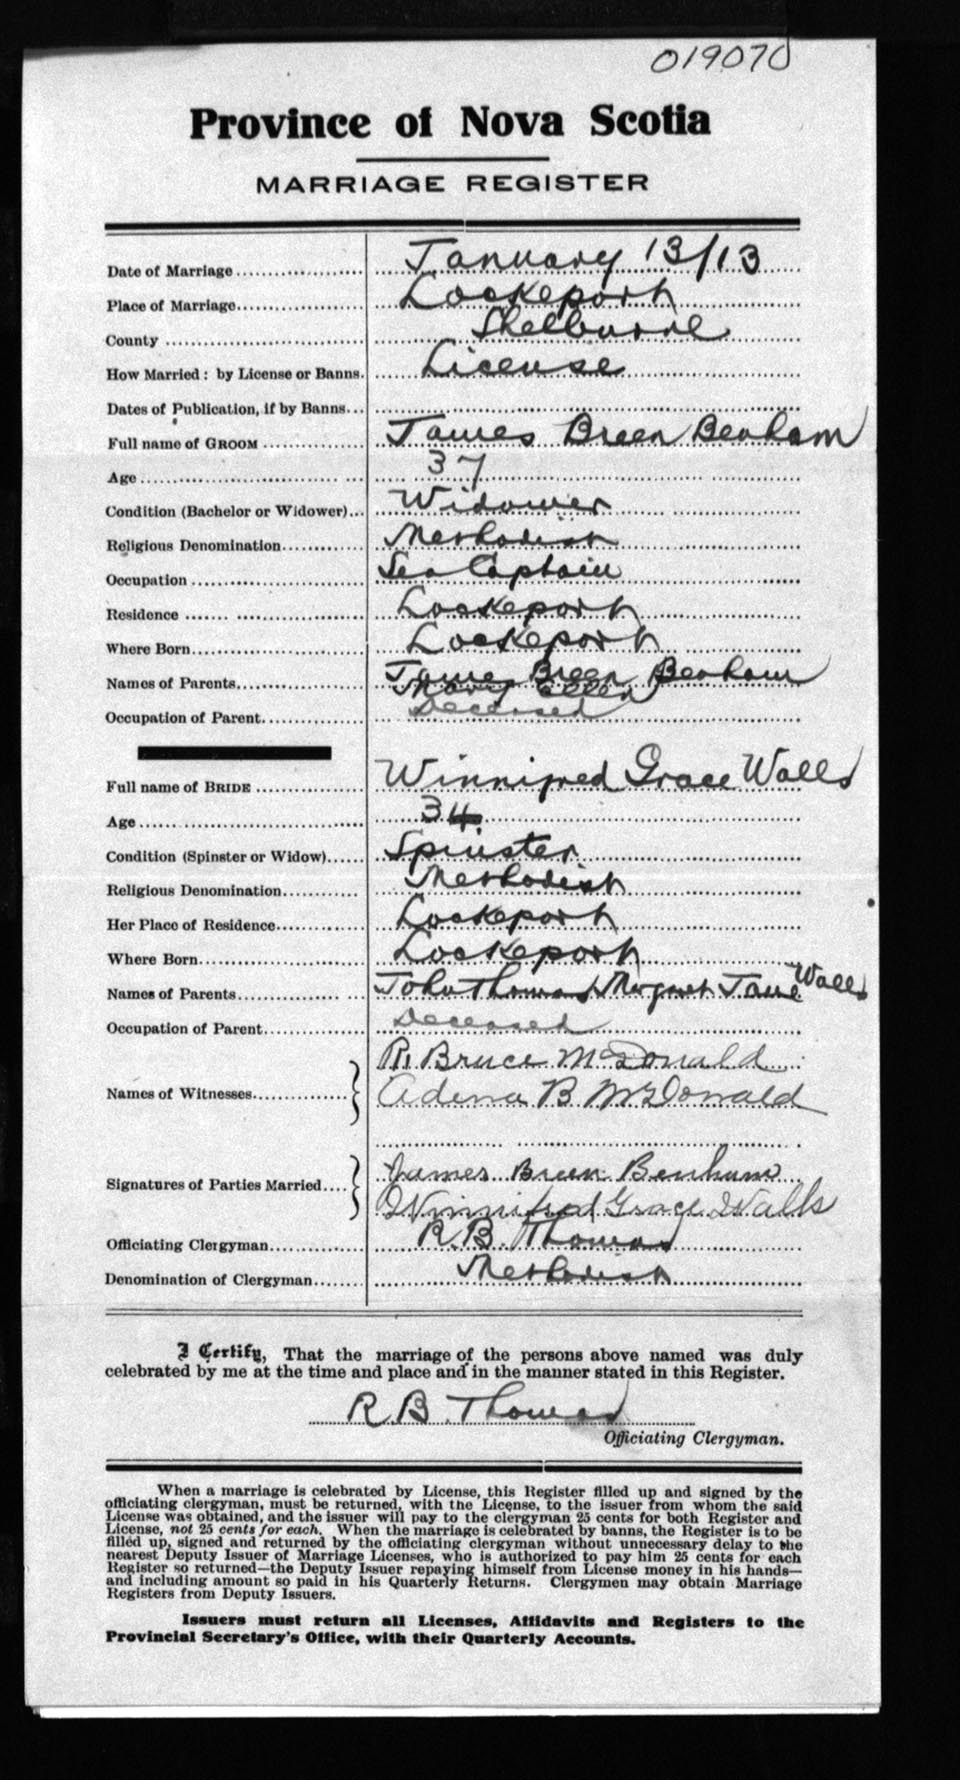 019070
Province of Nova Scotia
MARRIAGE REGISTER
Date of Marriage January 13/13
Place of Marriage Lockeport
County Shelburne
How Married: by License or Banns. License
Dates of Publication, if by Banns
Full name of GROOM James Breen Benham
Age 37
Condition (Bachelor or Widower) Widower
Religious Denomination Methodist
Occupation Sea Captain
Residence Lockeport
Where Born Lockeport
Names of Parents James Breen Benham
Mary Ellen
Occupation of Parent Deceased
Full name of BRIDE Winnifred Grace Walls
Age 34
Condition (Spinster or Widow) Spinster
Religious Denomination Methodist
Her Place of Residence Lockeport
Where Born Lockeport
Names of Parents John Thomas Margaret Jane Walls
Occupation of Parent Deceased
R. Bruce McDonald
Names of Witnesses Adena B McDonald
James Breen Benham
Signatures of Parties Married Winnifred Grace Walls
Officiating Clergyman R. B. Thomas
Denomination of Clergyman Methodist
I Certify, That the marriage of the persons above named was duly
celebrated by me at the time and place and in the manner stated in this Register.
R. B. Thomas
Officiating Clergyman.
When a marriage is celebrated by License, this Register filled up and signed by the
officiating clergyman, must be returned, with the License, to the issuer from whom the said
License was obtained, and the issuer will pay to the clergyman 25 cents for both Register and
License, not 25 cents for each. When the marriage is celebrated by banns, the Register is to be
filled up, signed and returned by the officiating clergyman without unnecessary delay to the
nearest Deputy Issuer of Marriage Licenses, who is authorized to pay him 25 cents for each
Register so returned—the Deputy Issuer repaying himself from License money in his hands—
and including amount so paid in his Quarterly Returns. Clergymen may obtain Marriage
Registers from Deputy Issuers.
Issuers must return all Licenses, Affidavits and Registers to the
Provincial Secretary's Office, with their Quarterly Accounts.